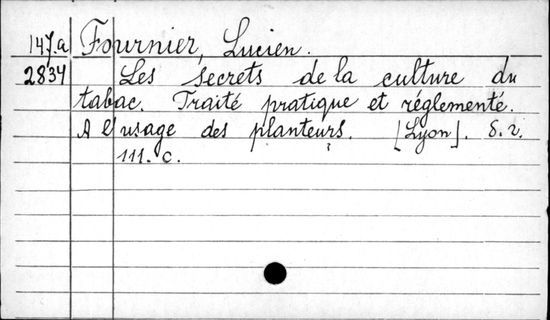 147.a Fournier, Lucien.
2834 Les secrets de la culture du
tabac. Traité pratique et réglementé.
A l'usage des planteurs. [Lyon]. S.v.
111. c.